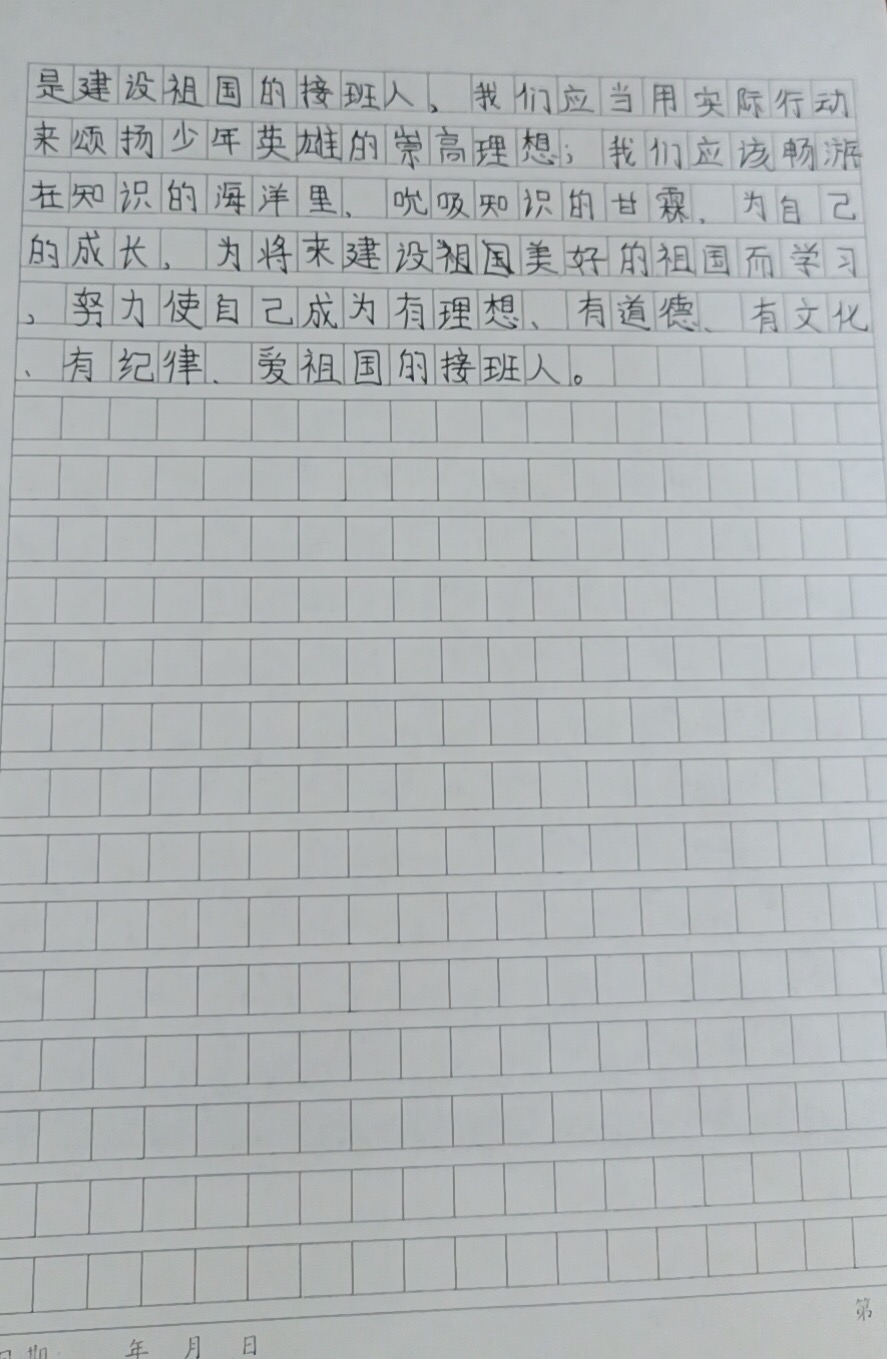 是建设祖国的接班人、我们应当用实际行动
来颂扬少年英雄的崇高理想；我们应该畅游
在知识的海洋里、吮吸知识的甘霖、为自己
的成长、为将来建设祖国美好的祖国而学习
，努力使自己成为有理想、有道德、有文化
、有纪律、爱祖国的接班人。
第
日期： 年 月 日